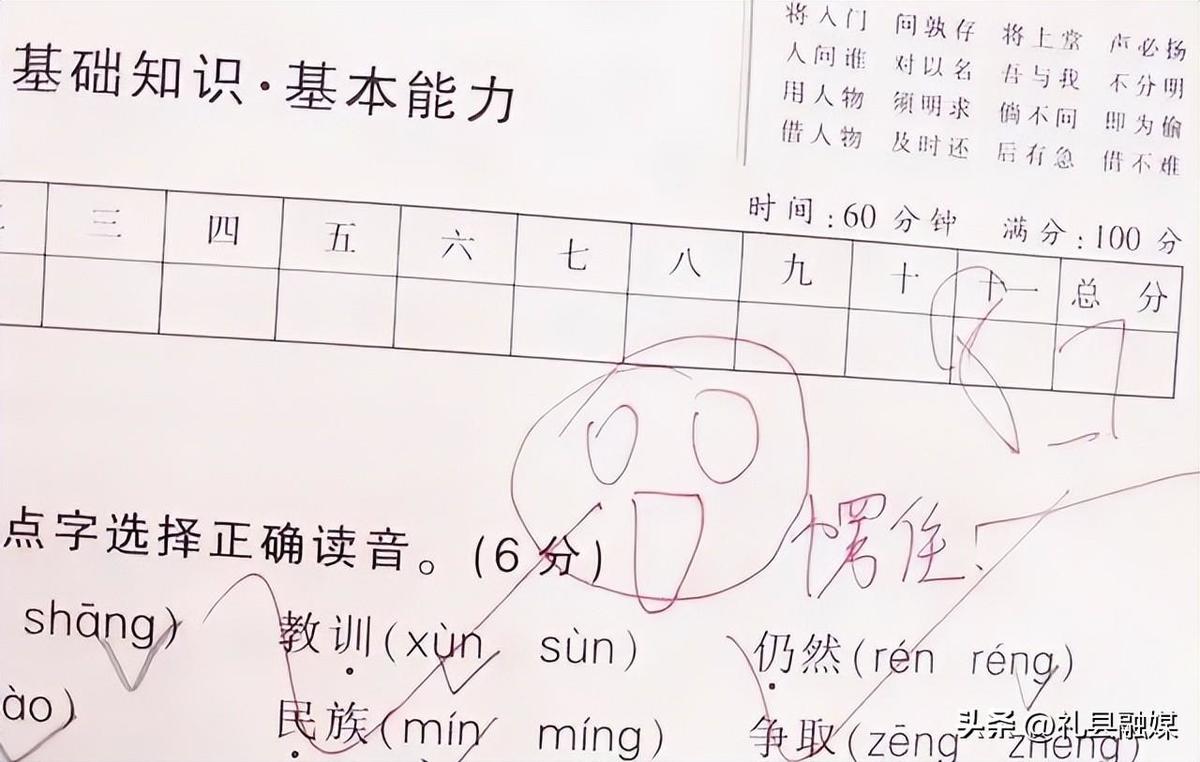 将入门 问孰存 将上堂 声必扬
人问谁 对以名 吾与我 不分明
用人物 须明求 倘不问 即为偷
借人物 及时还 后有急 借不难
基础知识·基本能力
时间:60分钟 满分:100分
三 四 五 六 七 八 九 十 十一 总分
87
愣住!
点字选择正确读音。(6分)
shāng) 教训(xùn sùn) 仍然(rén réng)
ào) 民族(mín míng) 争取(zēng zhēng)
头条 @礼县融媒